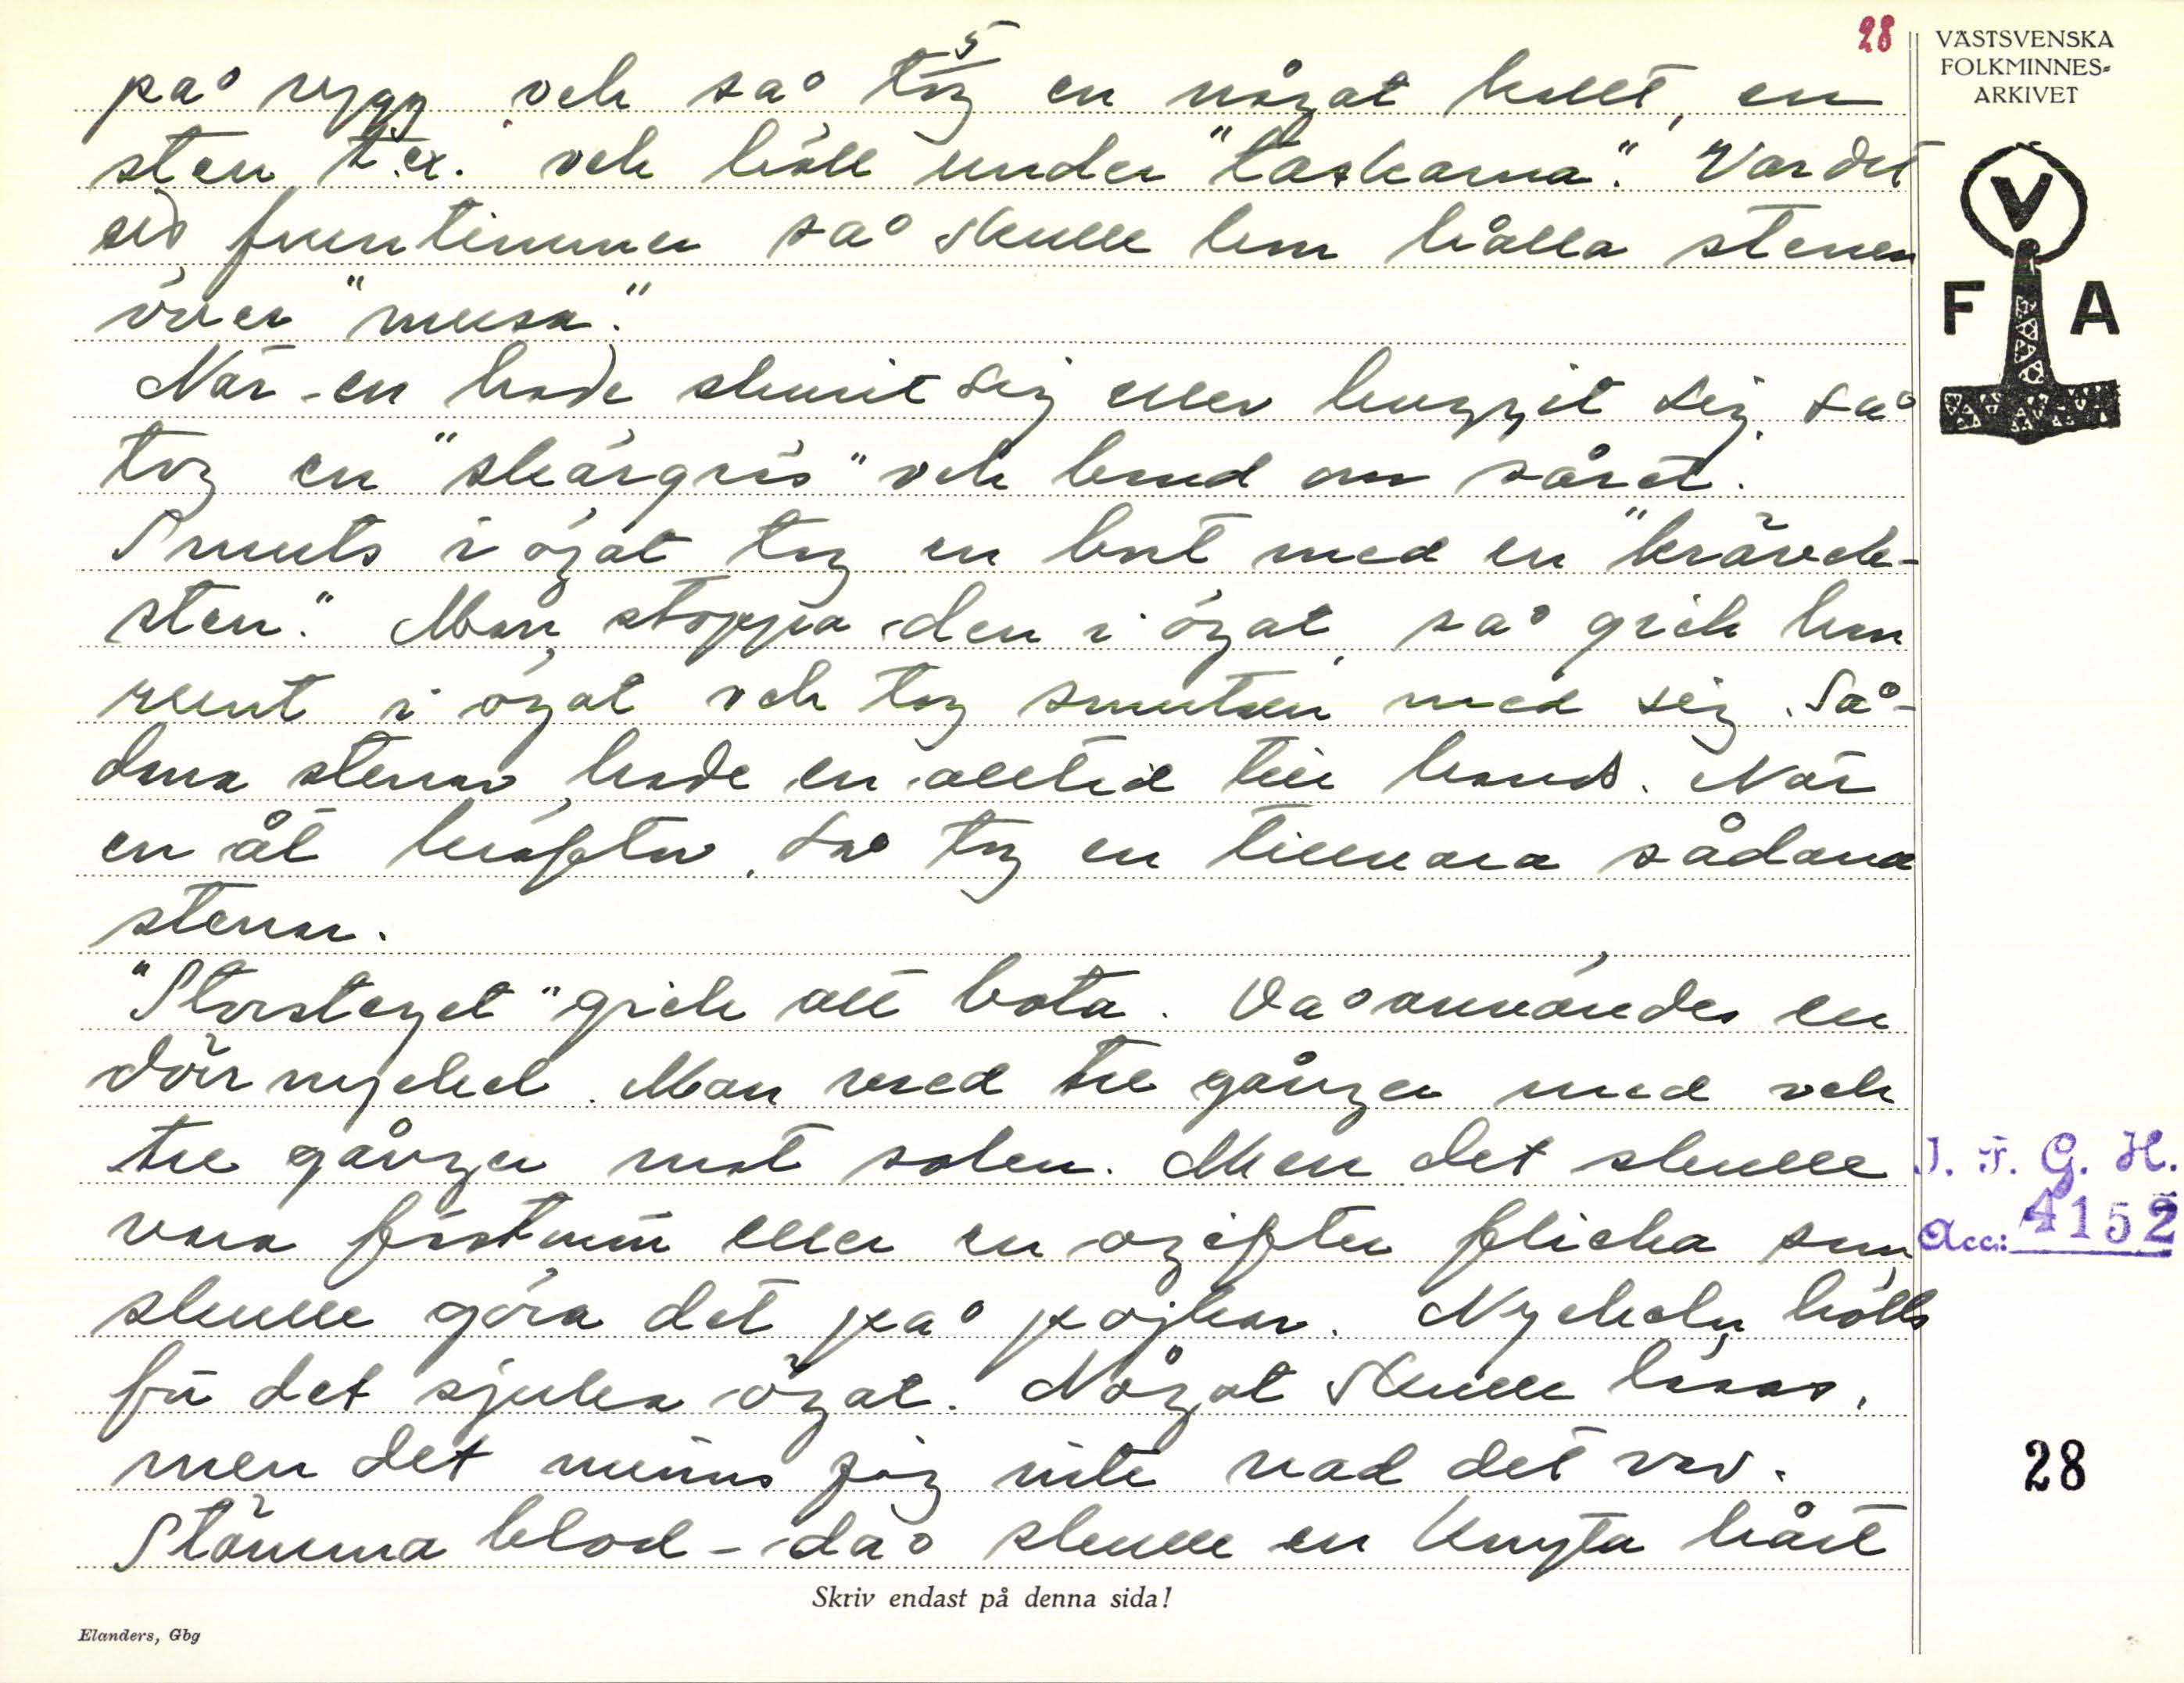 5
28
VÄSTSVENSKA
FOLKMINNES-
ARKIVET
V
F A
på rygg och så tog en något kallt, en
sten t.ex. och höll under "taskarna". Var det
ett fruntimmer så skulle hon hålla stenen
över "musa".
När en hade skurit sig eller huggit sig, så
tog en "skärgräs" och bend om såret.
Smuts i ögat tog en bort med en "kräveh-
sten." Man stoppa den i ögat, så gick han
runt i ögat och tog smutsen med sig. Så-
dana stenar hade en alltid till hands. När
en åt kräfter, så tog en tillvara sådana
stenar.
"Storsteget" gick att bota. Då användes en
dörrnyckel. Man vred tre gånger med och
tre gånger mot solen. Men det skulle
vara fästmö eller en ogifter flicka som
skulle göra det på pojkar. Nyckeln hölls
för det sjuka ögat. Något skulle läsas,
men det minns jag inte vad det var.
Stämma blod - då skulle en knyta hårt
I. F. G. H.
Acc: 4152
28
Skriv endast på denna sida!
Elanders, Gbg